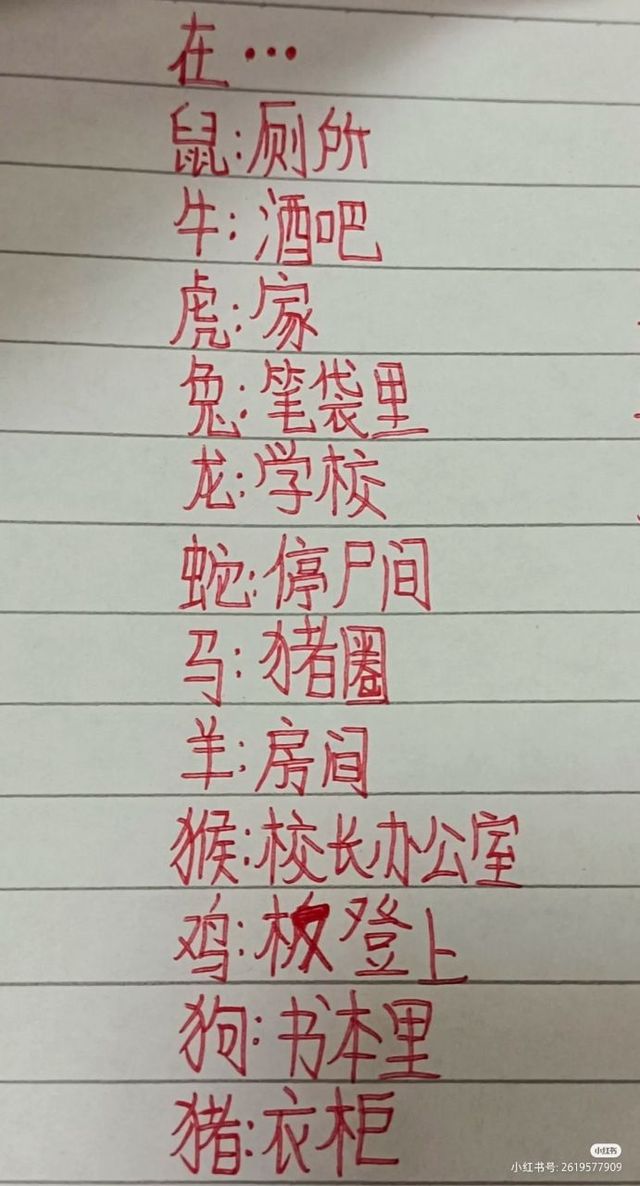 在…
鼠:厕所
牛:酒吧
虎:家
兔:笔袋里
龙:学校
蛇:停尸间
马:猪圈
羊:房间
猴:校长办公室
鸡:板登上
狗:书本里
猪:衣柜
小红书
小红书号: 2619577909